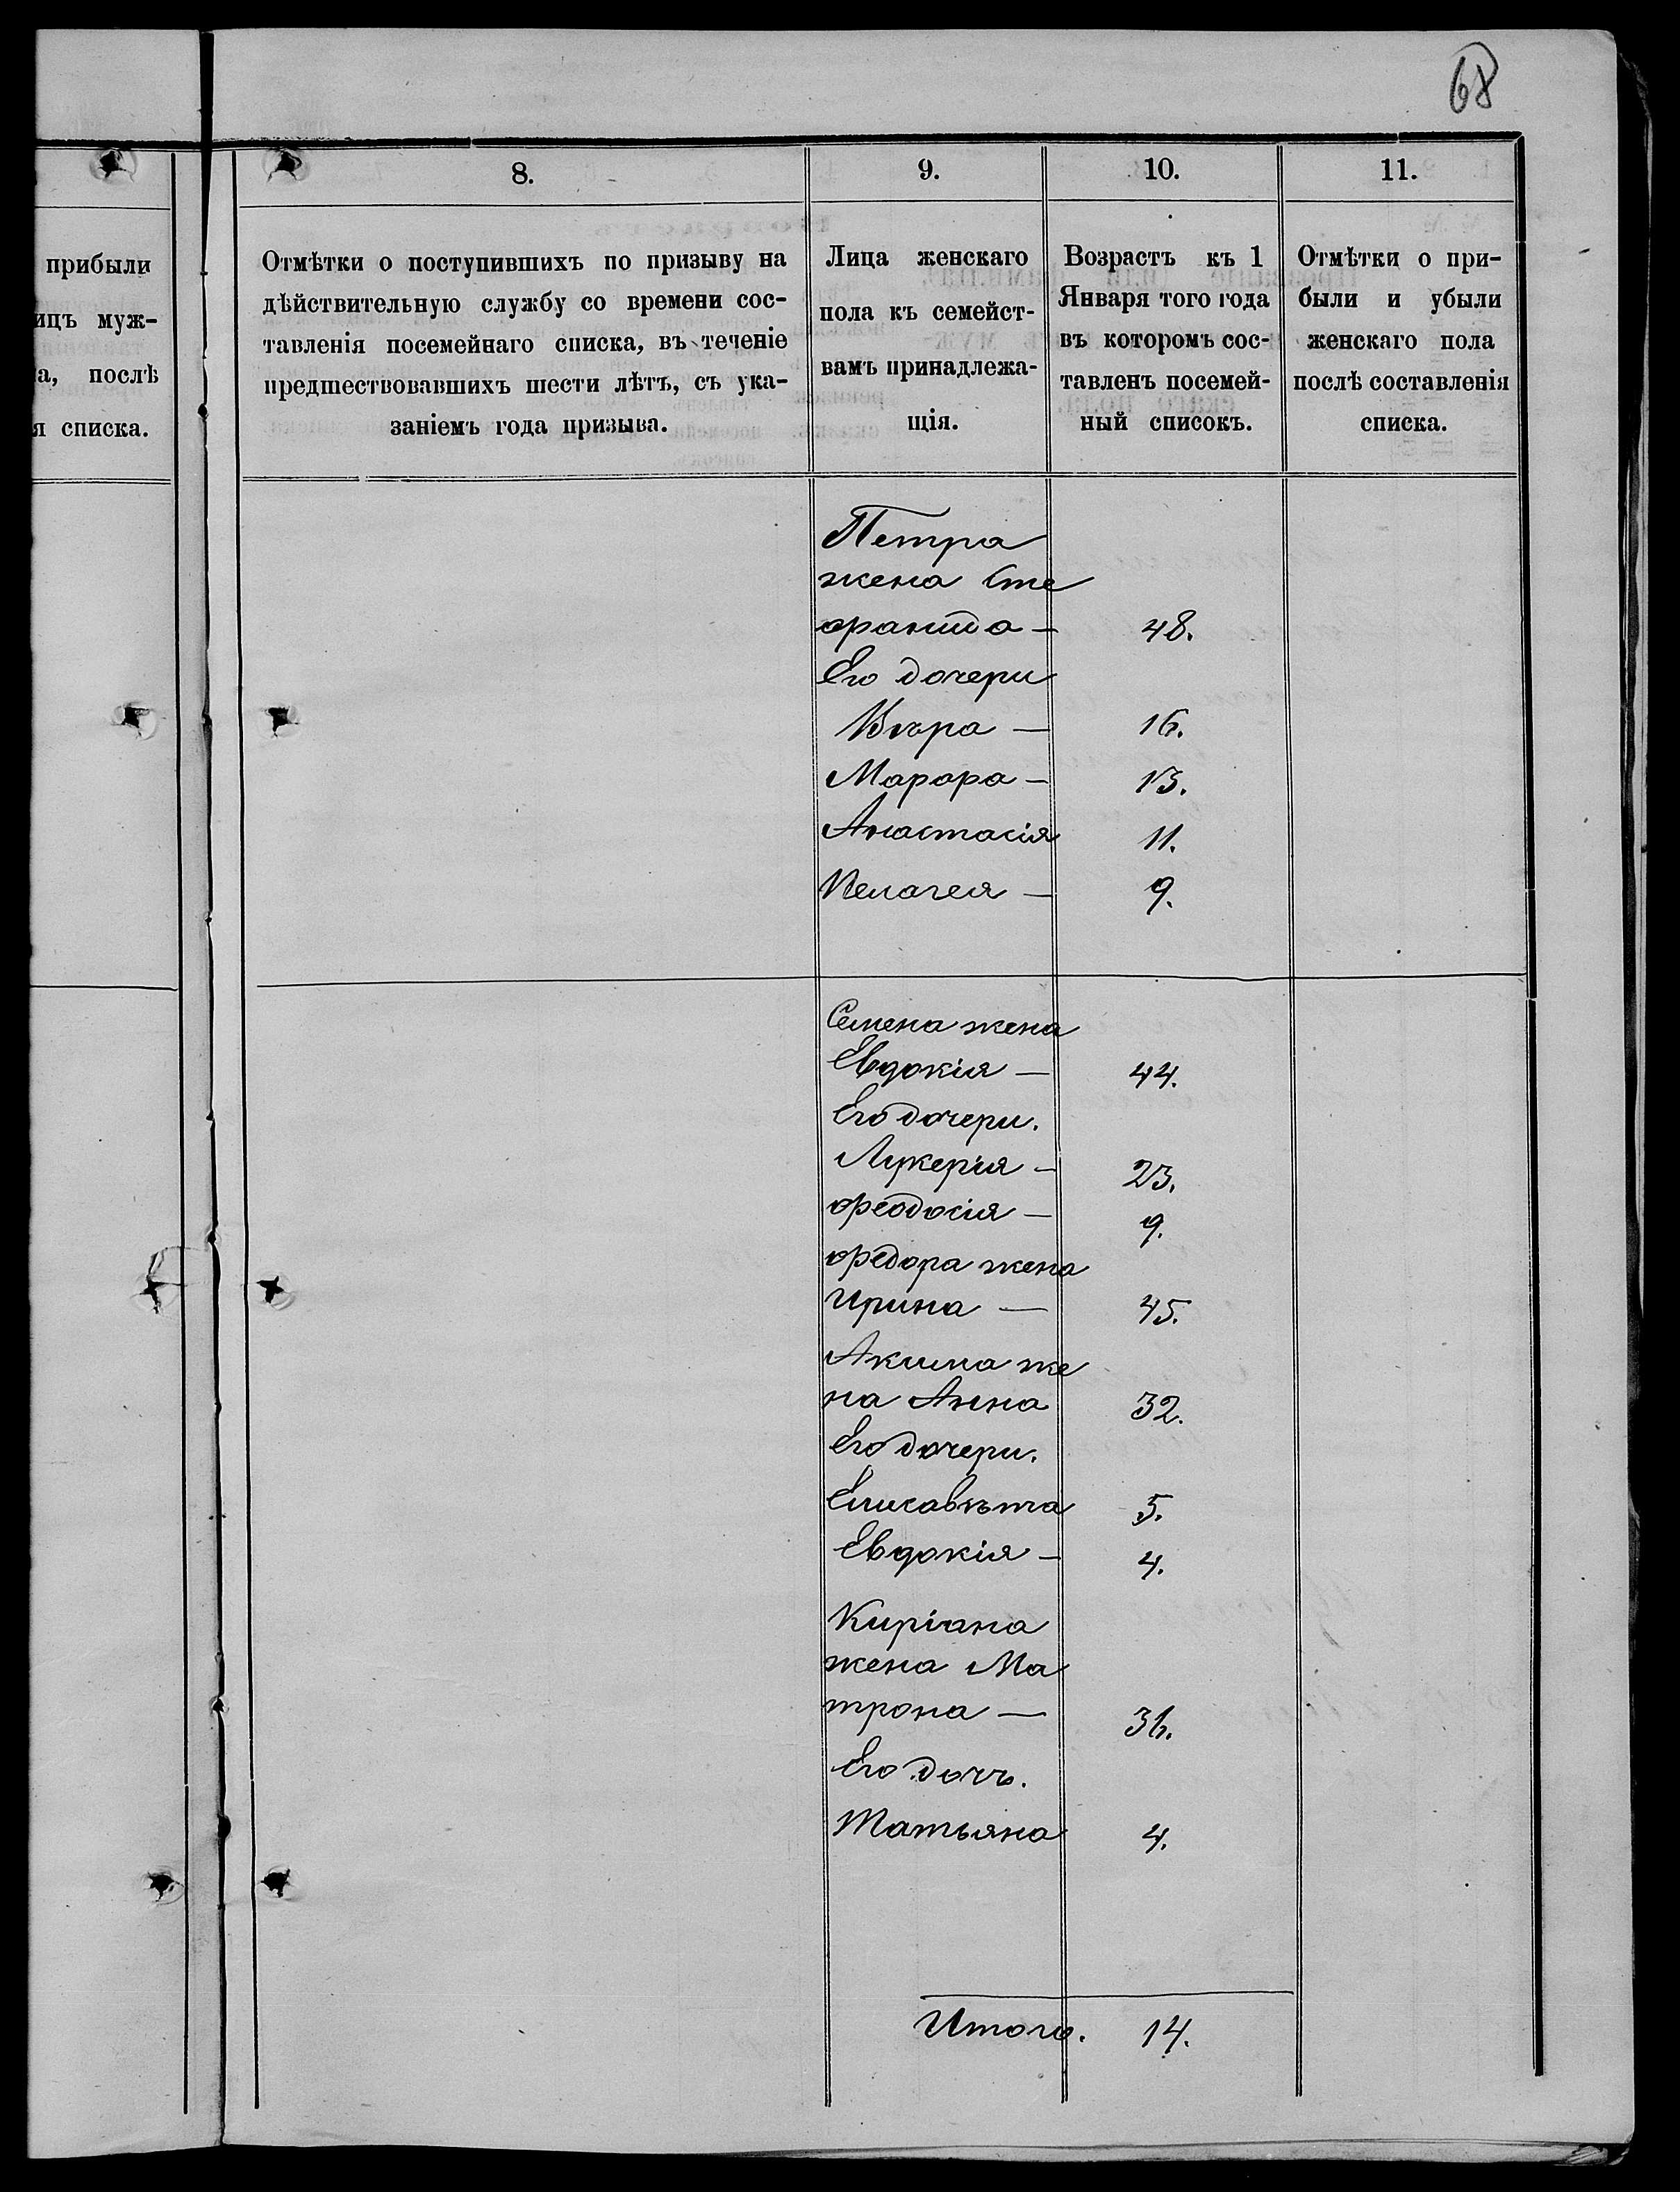 68
8.
9.
10.
11.
прибыли
ицъ муж-
а, послѣ
я списка.
Отмѣтки о поступившихъ по призыву на
дѣйствительную службу со времени сос-
тавленія посемейнаго списка, въ теченіе
предшествовавшихъ шести лѣтъ, съ ука-
заніемъ года призыва.
Лица женскаго
пола къ семейст-
вамъ принадлежа-
щія.
Возрастъ къ 1
Января того года
въ которомъ сос-
тавленъ посемей-
ный списокъ.
Отмѣтки о при-
были и убыли
женскаго пола
послѣ составленія
списка.
Петра
жена Сте
фанида — 48.
Его дочери
Вѣра — 16.
Марфа — 13.
Анастасія 11.
Пелагея — 9.
Семена жена
Евдокія — 44.
Его дочери.
Лукерія — 23.
Феодосія — 9.
Федора жена
Ирина — 45.
Акима же
на Анна 32.
Его дочери.
Елисавѣта 5.
Евдокія — 4.
Кипріана
жена Ма
трона — 36.
Его дочь.
Татьяна 4.
Итого. 14.